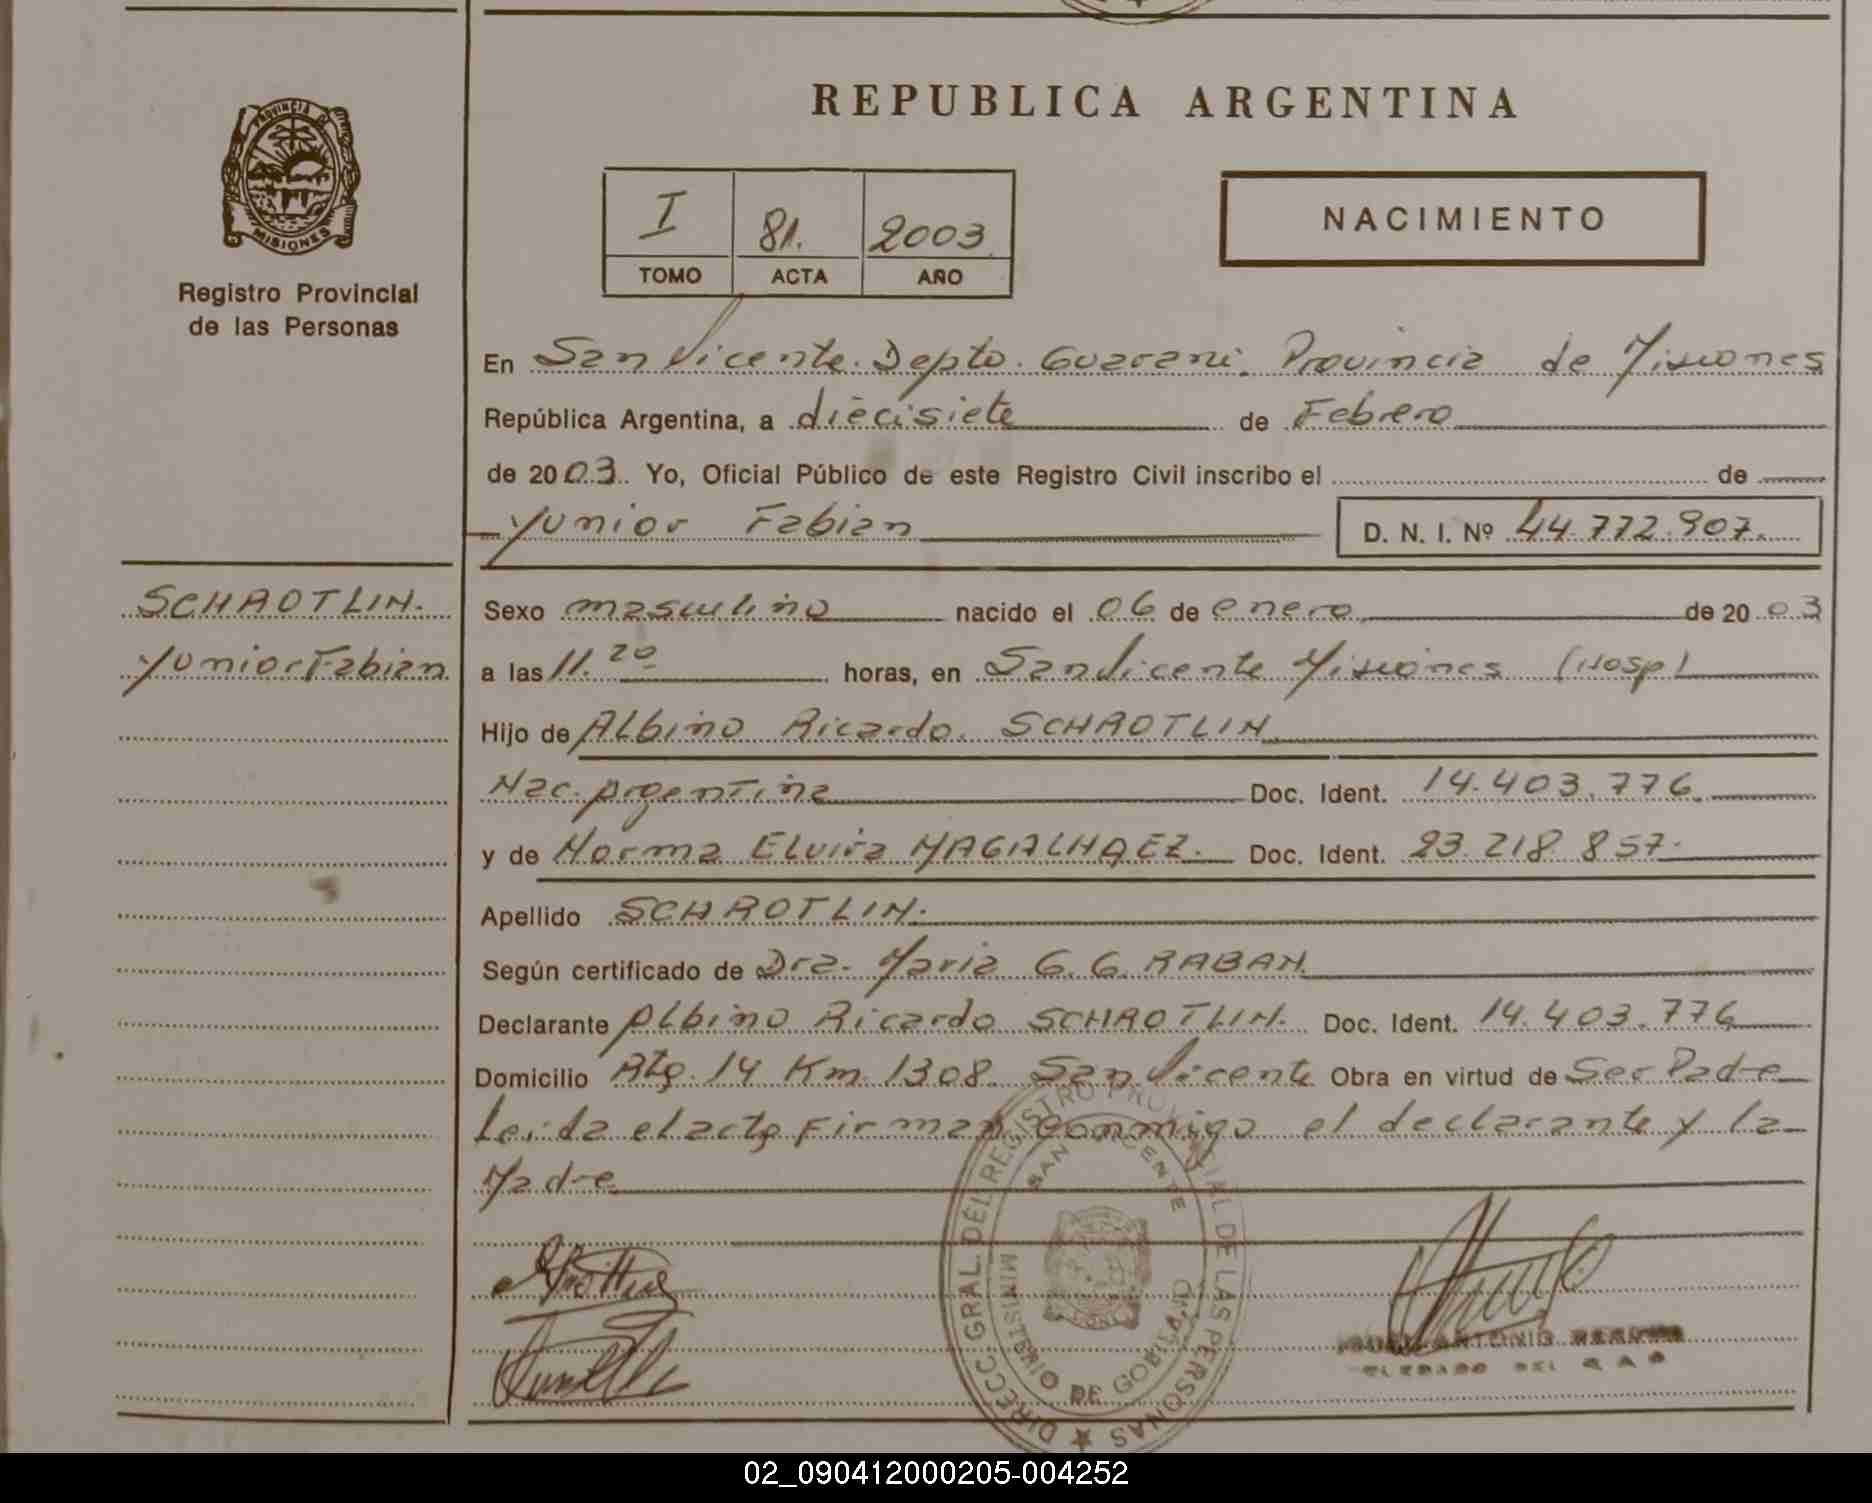 REPUBLICA ARGENTINA
PROVINCIA DE
MISIONES
Registro Provincial
de las Personas
I 81. 2003
TOMO ACTA AÑO
NACIMIENTO
En San Vicente. Depto. Guarani. Provincia de Misiones
República Argentina, a diecisiete de Febrero
de 2003. Yo, Oficial Público de este Registro Civil inscribo el de
Yunior Fabian D. N. I. Nº 44.772.907.
SCHROTLIN.
Yunior Fabian
Sexo masculino nacido el 06 de enero de 2003
a las 11.20 horas, en San Vicente Misiones (Hosp)
Hijo de Albino Ricardo SCHROTLIN
Nac. Argentina Doc. Ident. 14.403.776.
y de Norma Elvira MAGALHAEZ. Doc. Ident. 23.218.857.
Apellido SCHROTLIN.
Según certificado de Dra. Maria G. G. RABAN
Declarante Albino Ricardo SCHROTLIN. Doc. Ident. 14.403.776
Domicilio Rta. 14 Km 1308. San Vicente Obra en virtud de Ser Padre
Leida el acta firman conmigo el declarante y la
Madre
DIRECC. GRAL. DEL REGISTRO PROVINCIAL DE LAS PERSONAS
SAN VICENTE
MINISTERIO DE GOBIERNO
ANTONIO
02_090412000205-004252